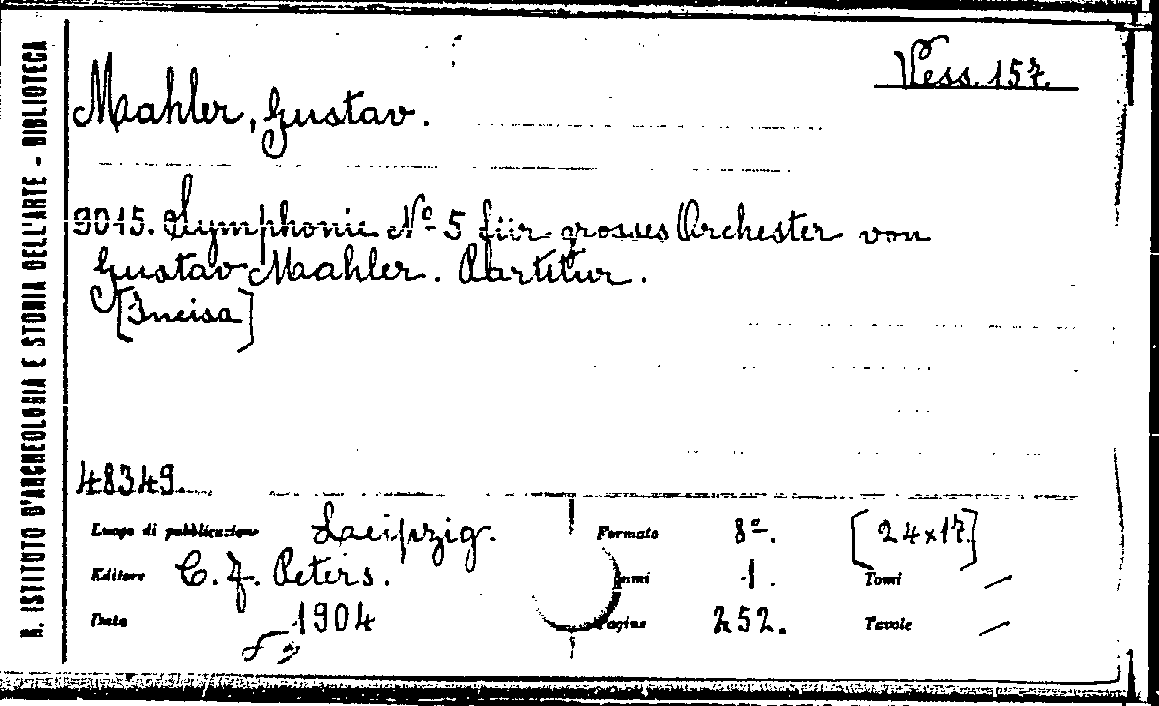 R. ISTITUTO D'ARCHEOLOGIA E STORIA DELL'ARTE - BIBLIOTECA
Vess. 157.
Mahler, Gustav.
9015. Symphonie Nº 5 für grosses Orchester von
Gustav Mahler. Partitur.
[Incisa]
48349.
Luogo di pubblicazione Leipzig. Formato 8º. [24x17]
Editore C. F. Peters. 1. Tomi /
Data 1904 Pagine 252. Tavole /